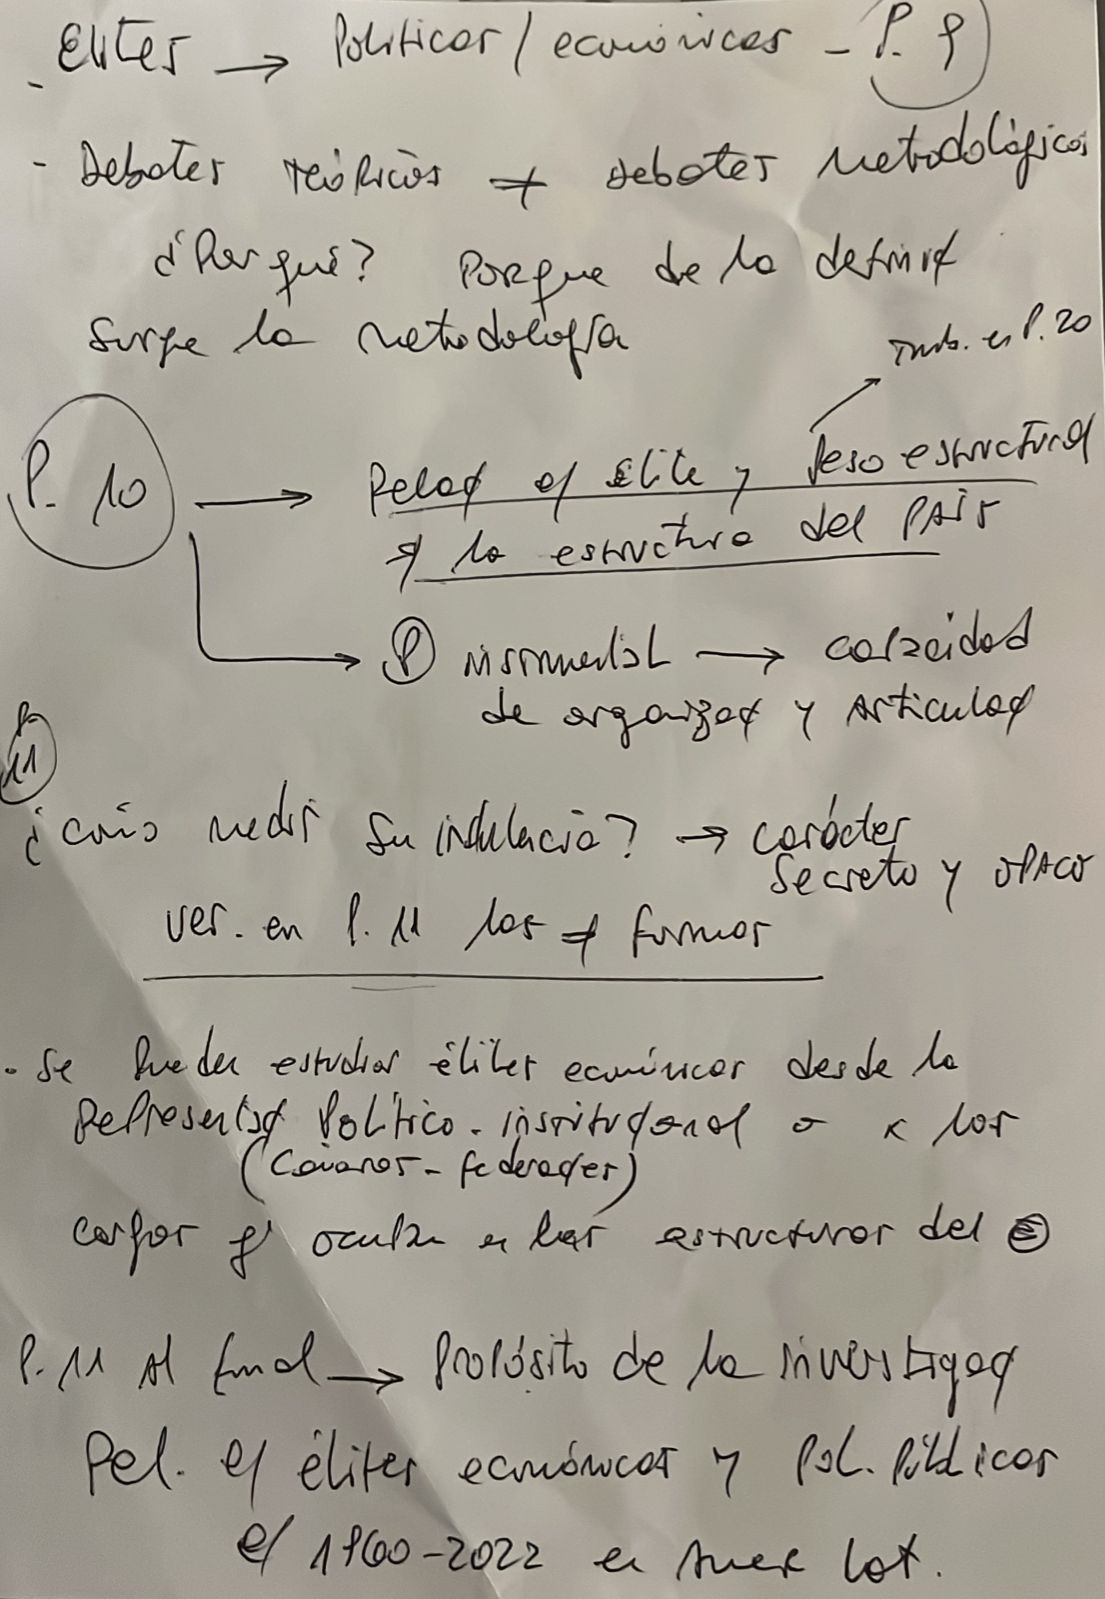 - Elites → Políticas / económicas - P. 9
- Debates teóricos ≠ debates metodológicos
¿Por qué? Porque de la definiɖ
surge la metodología
Tmb. en P. 20
P. 10 → Relaɖ e/ élite y peso estructural
≠ la estructura del PAÍS
→ Ⓟ instrumental → capacidad
de organizaɖ y articulaɖ
P. 11
¿Cómo medir su influencia? → carácter
secreto y opaco
ver. en P. 11 las ≠ formas
- Se pueden estudiar élites económicas desde la
Representaɖ Político-instituɖonal o x los
(Cámaras - federaɖes)
cargos q' ocupan en las estructuras del Ⓔ
P. 11 Al final → Propósito de la investigaɖ
Rel. e/ élites económicas y Pol. Públicas
e/ 1960-2022 en Amér Lat.